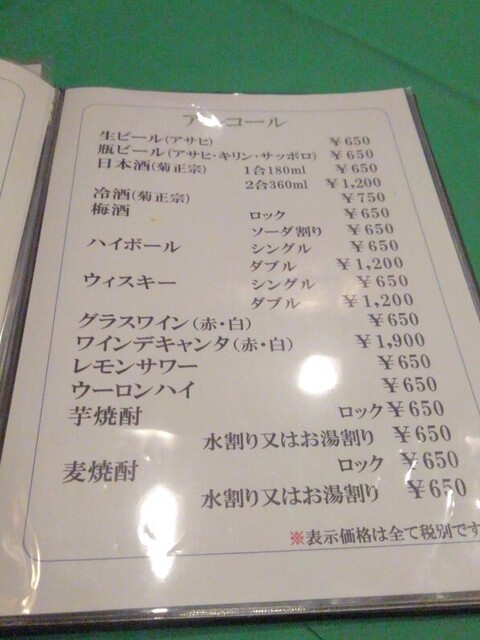 アルコール
生ビール(アサヒ) ￥650
瓶ビール(アサヒ・キリン・サッポロ) ￥650
日本酒(菊正宗) 1合180ml ￥650
2合360ml ￥1,200
冷酒(菊正宗) ￥750
梅酒 ロック ￥650
ソーダ割り ￥650
ハイボール シングル ￥650
ダブル ￥1,200
ウィスキー シングル ￥650
ダブル ￥1,200
グラスワイン(赤・白) ￥650
ワインデキャンタ(赤・白) ￥1,900
レモンサワー ￥650
ウーロンハイ ￥650
芋焼酎 ロック ￥650
水割り又はお湯割り ￥650
麦焼酎 ロック ￥650
水割り又はお湯割り ￥650
※表示価格は全て税別です